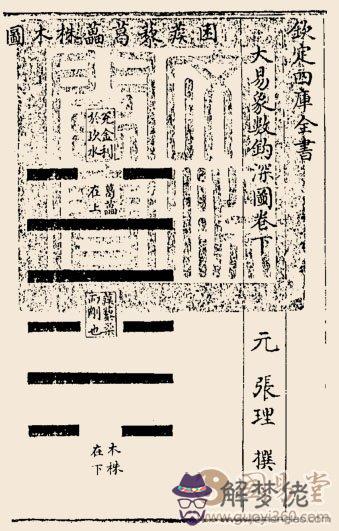 欽定四庫全書
大易象數鈎深圖卷下
元 張理 撰
困蒺藜葛藟株木圖
兌金利
葛藟
在上
蒺藜柔
而剛也
木株
在下
解梦佬
www.guoyi360.com